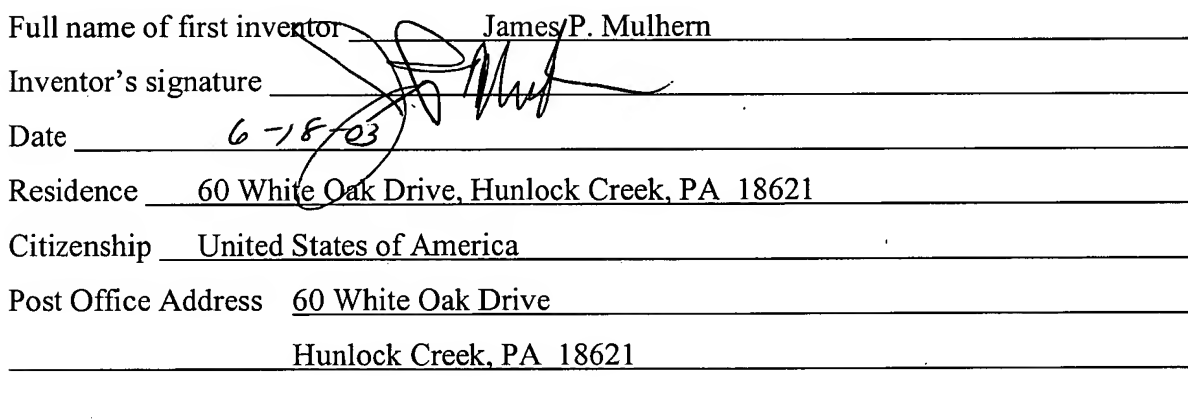 Full name of first inventor James P. Mulhern
Inventor's signature
Date 6-18-03
Residence 60 White Oak Drive, Hunlock Creek, PA 18621
Citizenship United States of America
Post Office Address 60 White Oak Drive
Hunlock Creek, PA 18621